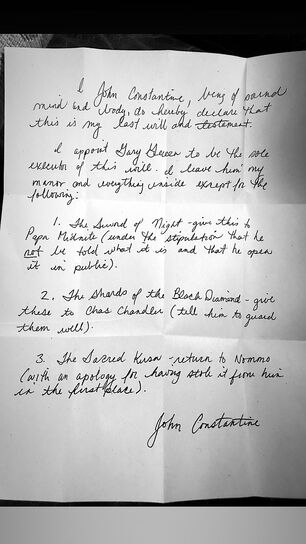 I John Constantine, being of sound
mind and body, do hereby declare that
this is my last will and testement.
I appoint Gary Green to be the sole
executor of this will. I leave him my
manor and everything inside except for the
following:
1. The Sword of Night - give this to
Papa Midnite (under the stipulation that he
not be told what it is and that he open
it in public).
2. The Shards of the Black Diamond - give
these to Chas Chandler (tell him to guard
them well).
3. The Sacred Kusa - return to Nommo
(with an apology for having stole it from him
in the first place).
John Constantine